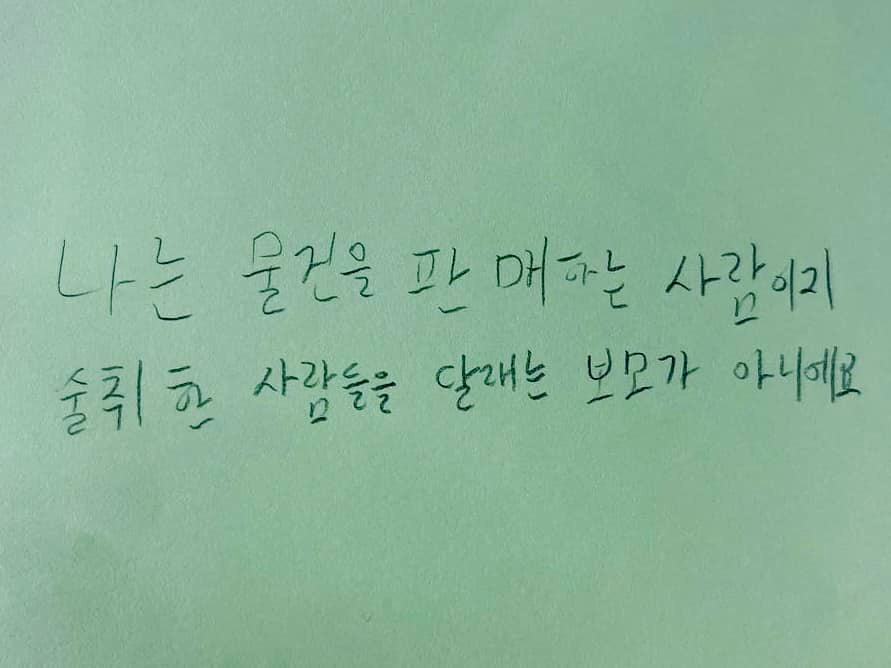 나는 물건을 판매하는 사람이지
술취한 사람들을 달래는 보모가 아니에요